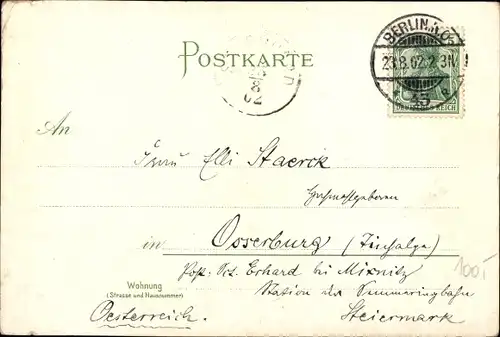 POSTKARTE
BERLIN.
23.8.02.2-3N.
45
DEUTSCHES REICH
8
02
An
Frau Elli Staerck
Hochwohlgeboren
in Osserburg (Fischalpe)
Post St. Erhard bei Mixnitz
Wohnung
(Strasse und Hausnummer)
Station der Semmeringbahn
Oesterreich.
Steiermark
100,-